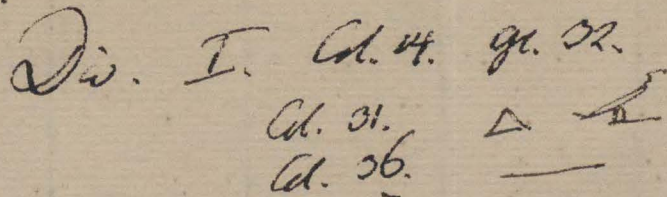 Div. I. Cl. 14. gl. 32.
Cl. 31. △
Cl. 36. —